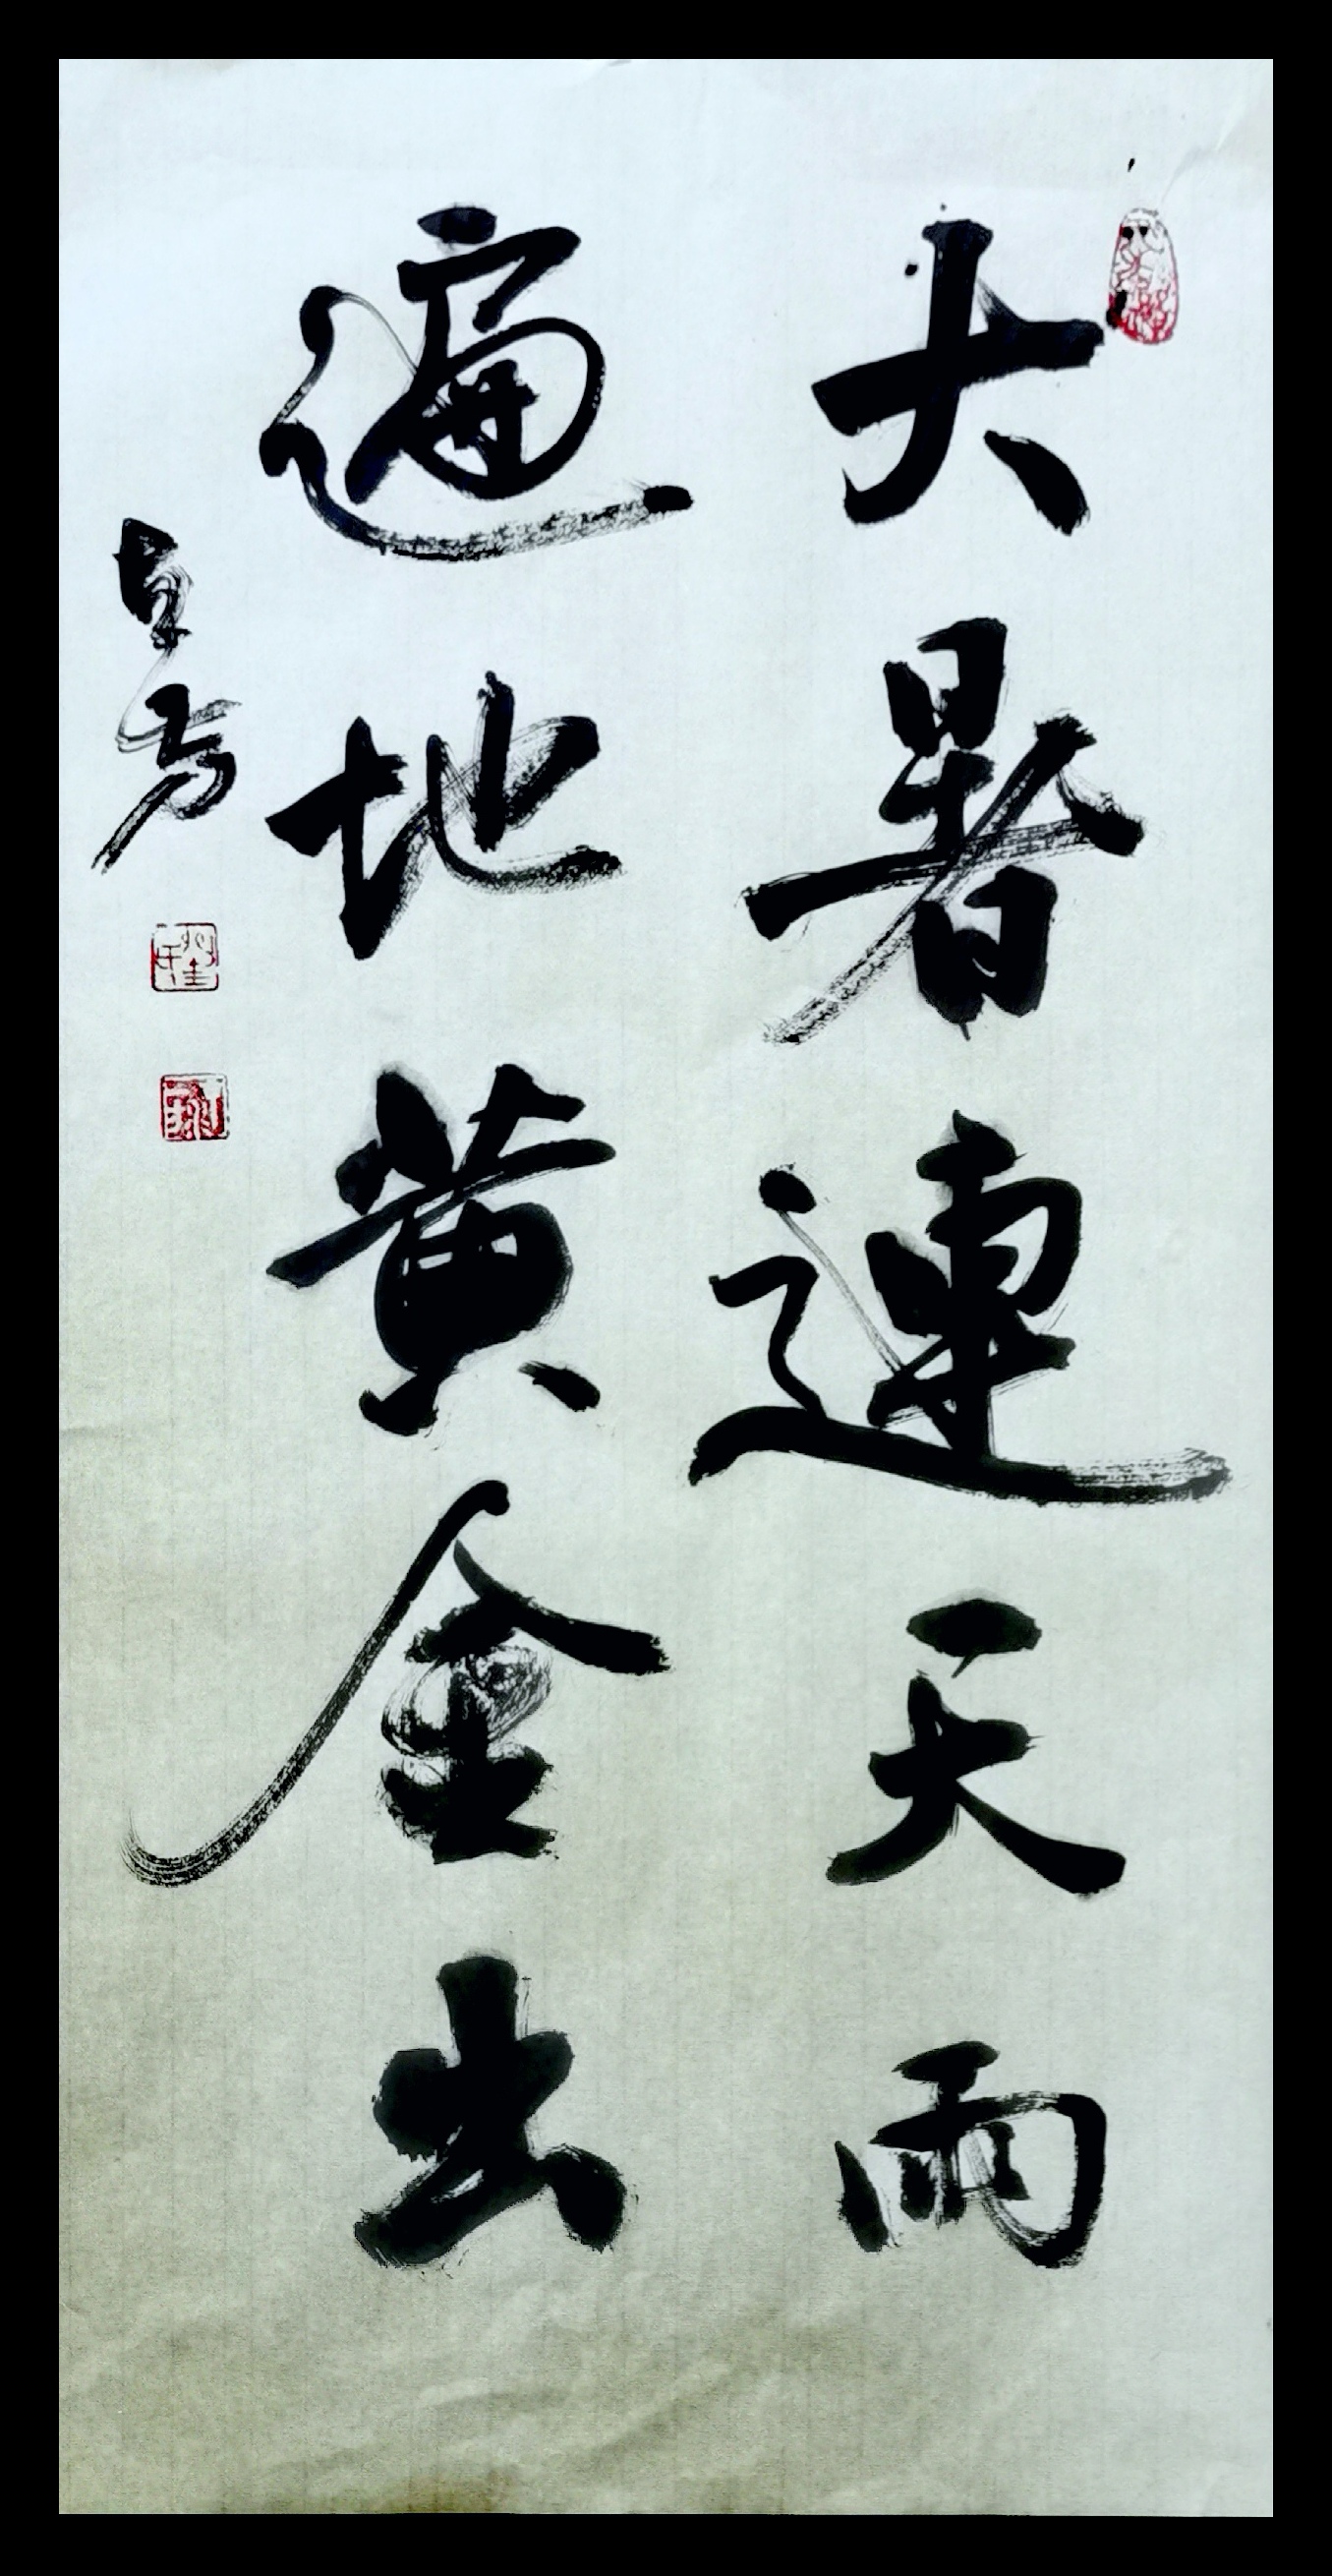 大暑連天雨
遍地黄金出